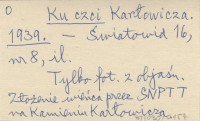 0
Ku czci Karłowicza.
1939. – Światowid 16,
nr 8, il.
Tylko fot. z objaśn.
Złożenie wieńca przez SNPTT
na Kamieniu Karłowicza